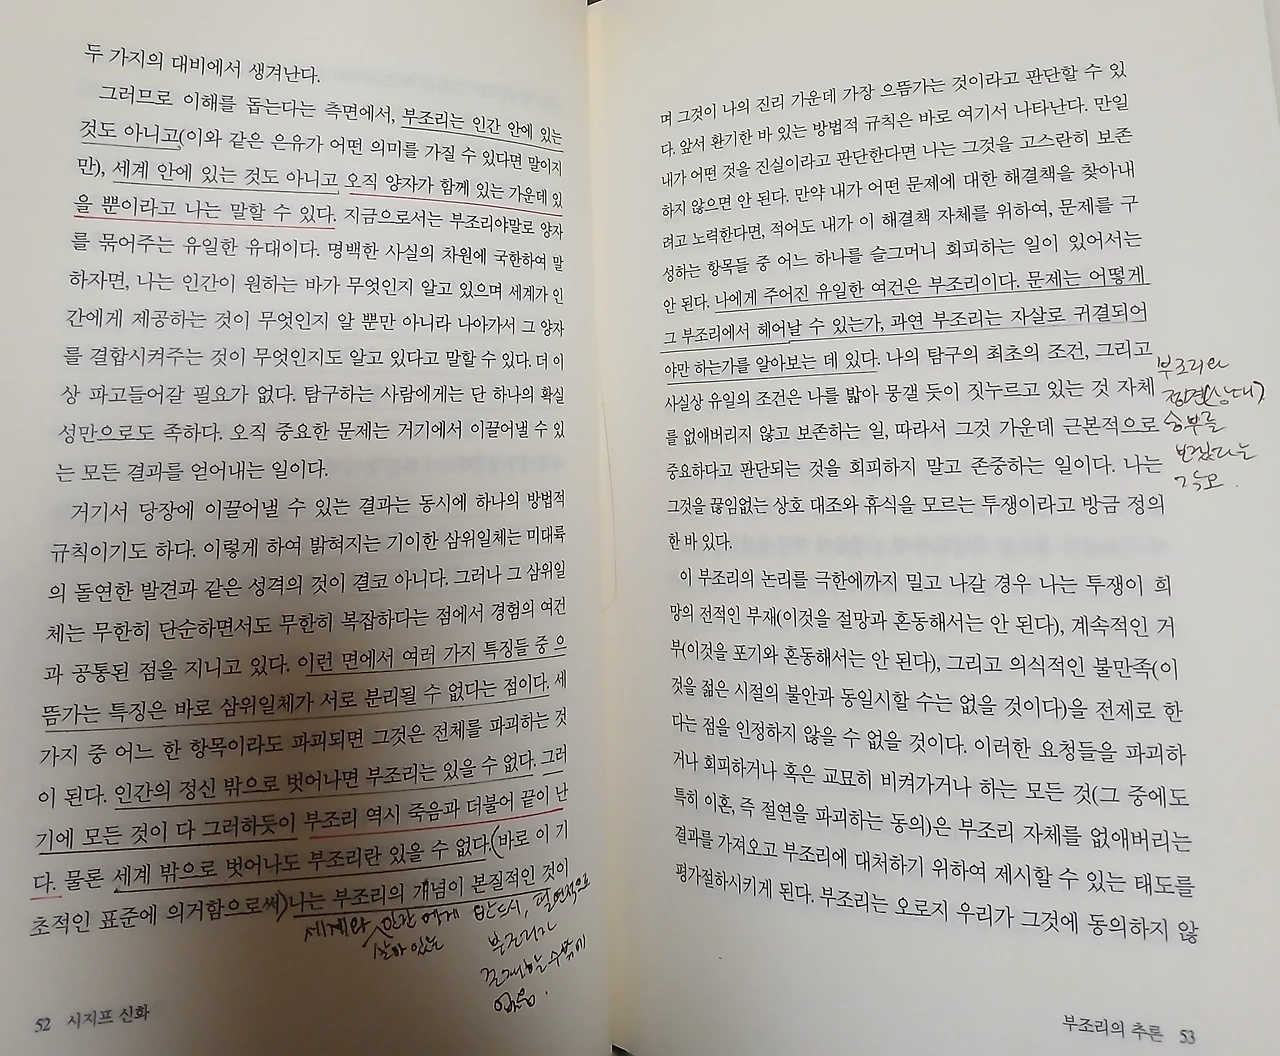 두 가지의 대비에서 생겨난다.
그러므로 이해를 돕는다는 측면에서, 부조리는 인간 안에 있는
것도 아니고(이와 같은 은유가 어떤 의미를 가질 수 있다면 말이지
만), 세계 안에 있는 것도 아니고 오직 양자가 함께 있는 가운데 있
을 뿐이라고 나는 말할 수 있다. 지금으로서는 부조리야말로 양자
를 묶어주는 유일한 유대이다. 명백한 사실의 차원에 국한하여 말
하자면, 나는 인간이 원하는 바가 무엇인지 알고 있으며 세계가 인
간에게 제공하는 것이 무엇인지 알 뿐만 아니라 나아가서 그 양자
를 결합시켜주는 것이 무엇인지도 알고 있다고 말할 수 있다. 더 이
상 파고들어갈 필요가 없다. 탐구하는 사람에게는 단 하나의 확실
성만으로도 족하다. 오직 중요한 문제는 거기에서 이끌어낼 수 있
는 모든 결과를 얻어내는 일이다.
거기서 당장에 이끌어낼 수 있는 결과는 동시에 하나의 방법적
규칙이기도 하다. 이렇게 하여 밝혀지는 기이한 삼위일체는 미대륙
의 돌연한 발견과 같은 성격의 것이 결코 아니다. 그러나 그 삼위일
체는 무한히 단순하면서도 무한히 복잡하다는 점에서 경험의 여건
과 공통된 점을 지니고 있다. 이런 면에서 여러 가지 특징들 중 으
뜸가는 특징은 바로 삼위일체가 서로 분리될 수 없다는 점이다. 세
가지 중 어느 한 항목이라도 파괴되면 그것은 전체를 파괴하는 것
이 된다. 인간의 정신 밖으로 벗어나면 부조리는 있을 수 없다. 그러
기에 모든 것이 다 그러하듯이 부조리 역시 죽음과 더불어 끝이 난
다. 물론 세계 밖으로 벗어나도 부조리란 있을 수 없다.(바로 이 기
초적인 표준에 의거함으로써)나는 부조리의 개념이 본질적인 것이
세계와 인간에게 반드시, 필연적으로
살아 있는
부조리가
존재할 수밖에
없음.
52 시지프 신화
며 그것이 나의 진리 가운데 가장 으뜸가는 것이라고 판단할 수 있
다. 앞서 환기한 바 있는 방법적 규칙은 바로 여기서 나타난다. 만일
내가 어떤 것을 진실이라고 판단한다면 나는 그것을 고스란히 보존
하지 않으면 안 된다. 만약 내가 어떤 문제에 대한 해결책을 찾아내
려고 노력한다면, 적어도 내가 이 해결책 자체를 위하여, 문제를 구
성하는 항목들 중 어느 하나를 슬그머니 회피하는 일이 있어서는
안 된다. 나에게 주어진 유일한 여건은 부조리이다. 문제는 어떻게
그 부조리에서 헤어날 수 있는가, 과연 부조리는 자살로 귀결되어
야만 하는가를 알아보는 데 있다. 나의 탐구의 최초의 조건, 그리고
사실상 유일의 조건은 나를 밟아 뭉갤 듯이 짓누르고 있는 것 자체
를 없애버리지 않고 보존하는 일, 따라서 그것 가운데 근본적으로
중요하다고 판단되는 것을 회피하지 말고 존중하는 일이다. 나는
그것을 끊임없는 상호 대조와 휴식을 모르는 투쟁이라고 방금 정의
한 바 있다.
부조리와
승부를
보겠다는
각오.
이 부조리의 논리를 극한에까지 밀고 나갈 경우 나는 투쟁이 희
망의 전적인 부재(이것을 절망과 혼동해서는 안 된다), 계속적인 거
부(이것을 포기와 혼동해서는 안 된다), 그리고 의식적인 불만족(이
것을 젊은 시절의 불안과 동일시할 수는 없을 것이다)을 전제로 한
다는 점을 인정하지 않을 수 없을 것이다. 이러한 요청들을 파괴하
거나 회피하거나 혹은 교묘히 비켜가거나 하는 모든 것(그 중에도
특히 이혼, 즉 절연을 파괴하는 동의)은 부조리 자체를 없애버리는
결과를 가져오고 부조리에 대처하기 위하여 제시할 수 있는 태도를
평가절하시키게 된다. 부조리는 오로지 우리가 그것에 동의하지 않
부조리의 추론 53